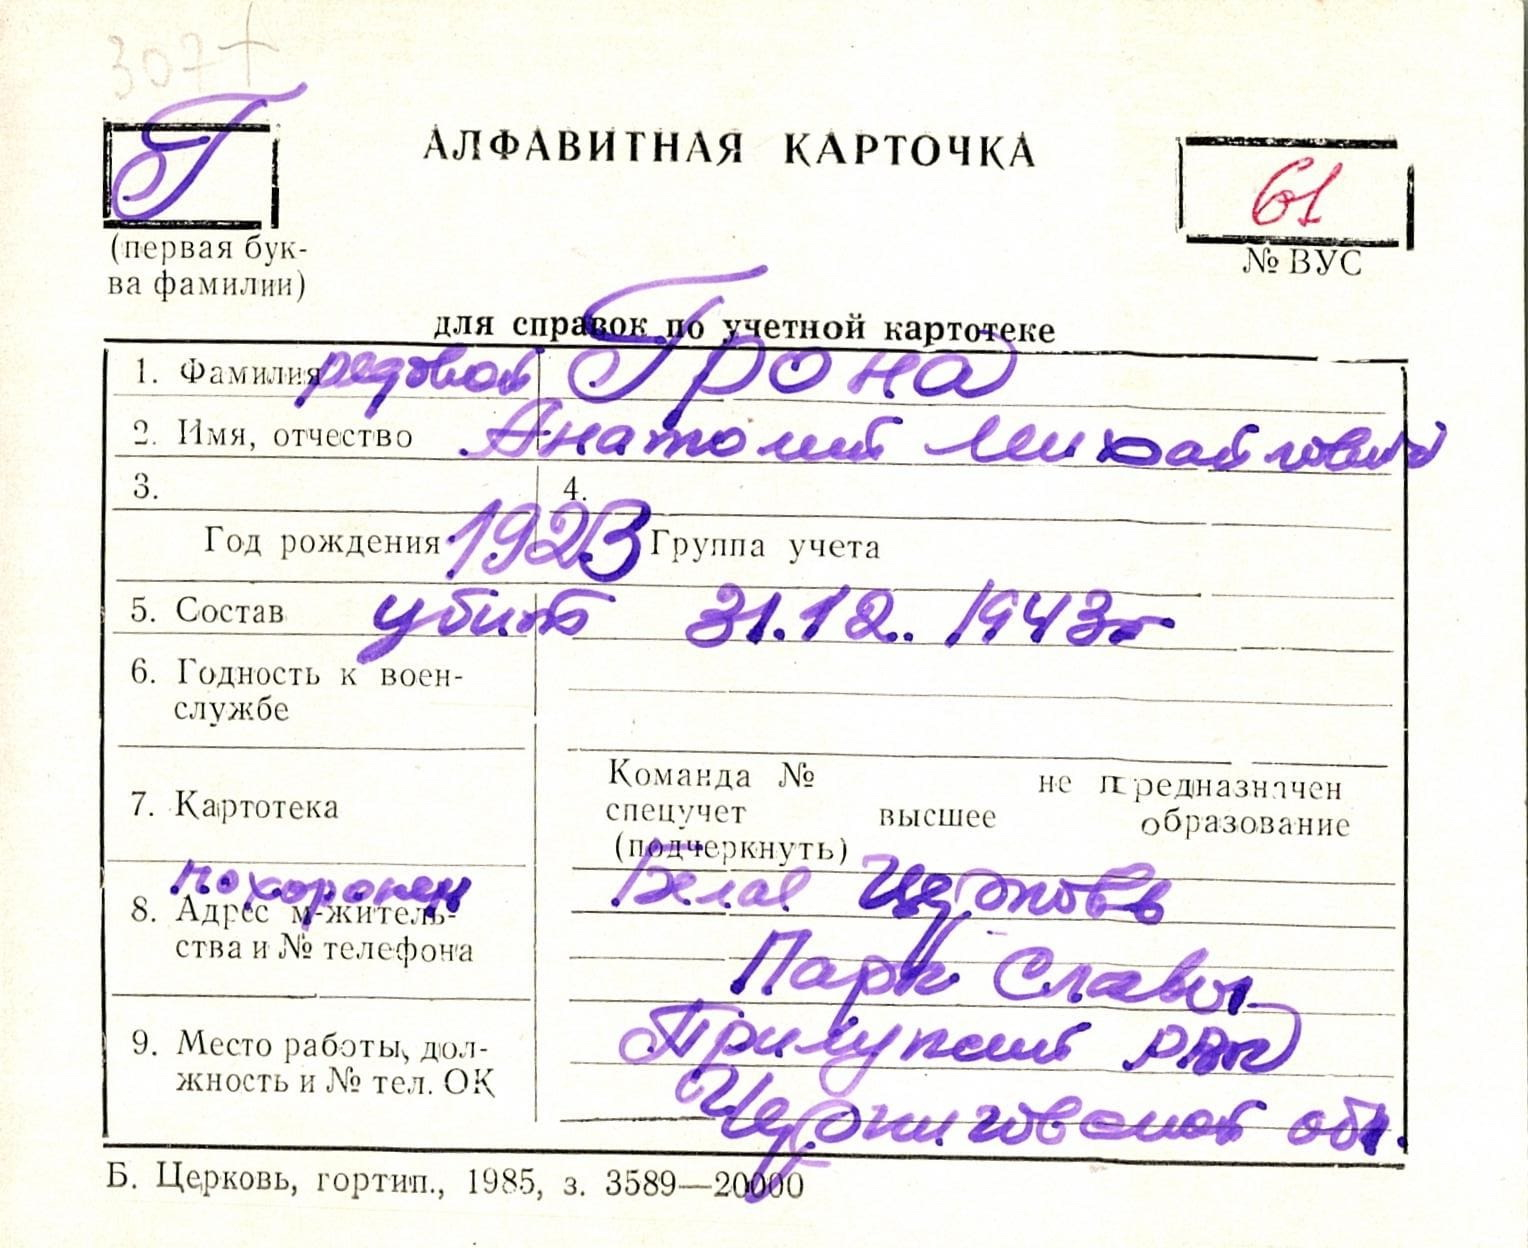 307+
Г
АЛФАВИТНАЯ КАРТОЧКА
61
(первая бук-
ва фамилии)
№ ВУС
для справок по учетной картотеке
1. Фамилия рядовой Грона
2. Имя, отчество Анатолий Михайлович
3. 4.
Год рождения 1923 Группа учета
5. Состав убит 31.12.1943г
6. Годность к воен-
службе
7. Картотека
Команда № не предназначен
спецучет высшее образование
(подчеркнуть)
похоронен Белая Церковь
8. Адрес м-житель-
ства и № телефона
Парк Славы
9. Место работы, дол-
жность и № тел. ОК
Прилупский РВК
Черниговской обл.
Б. Церковь, гортип., 1985, з. 3589—20000